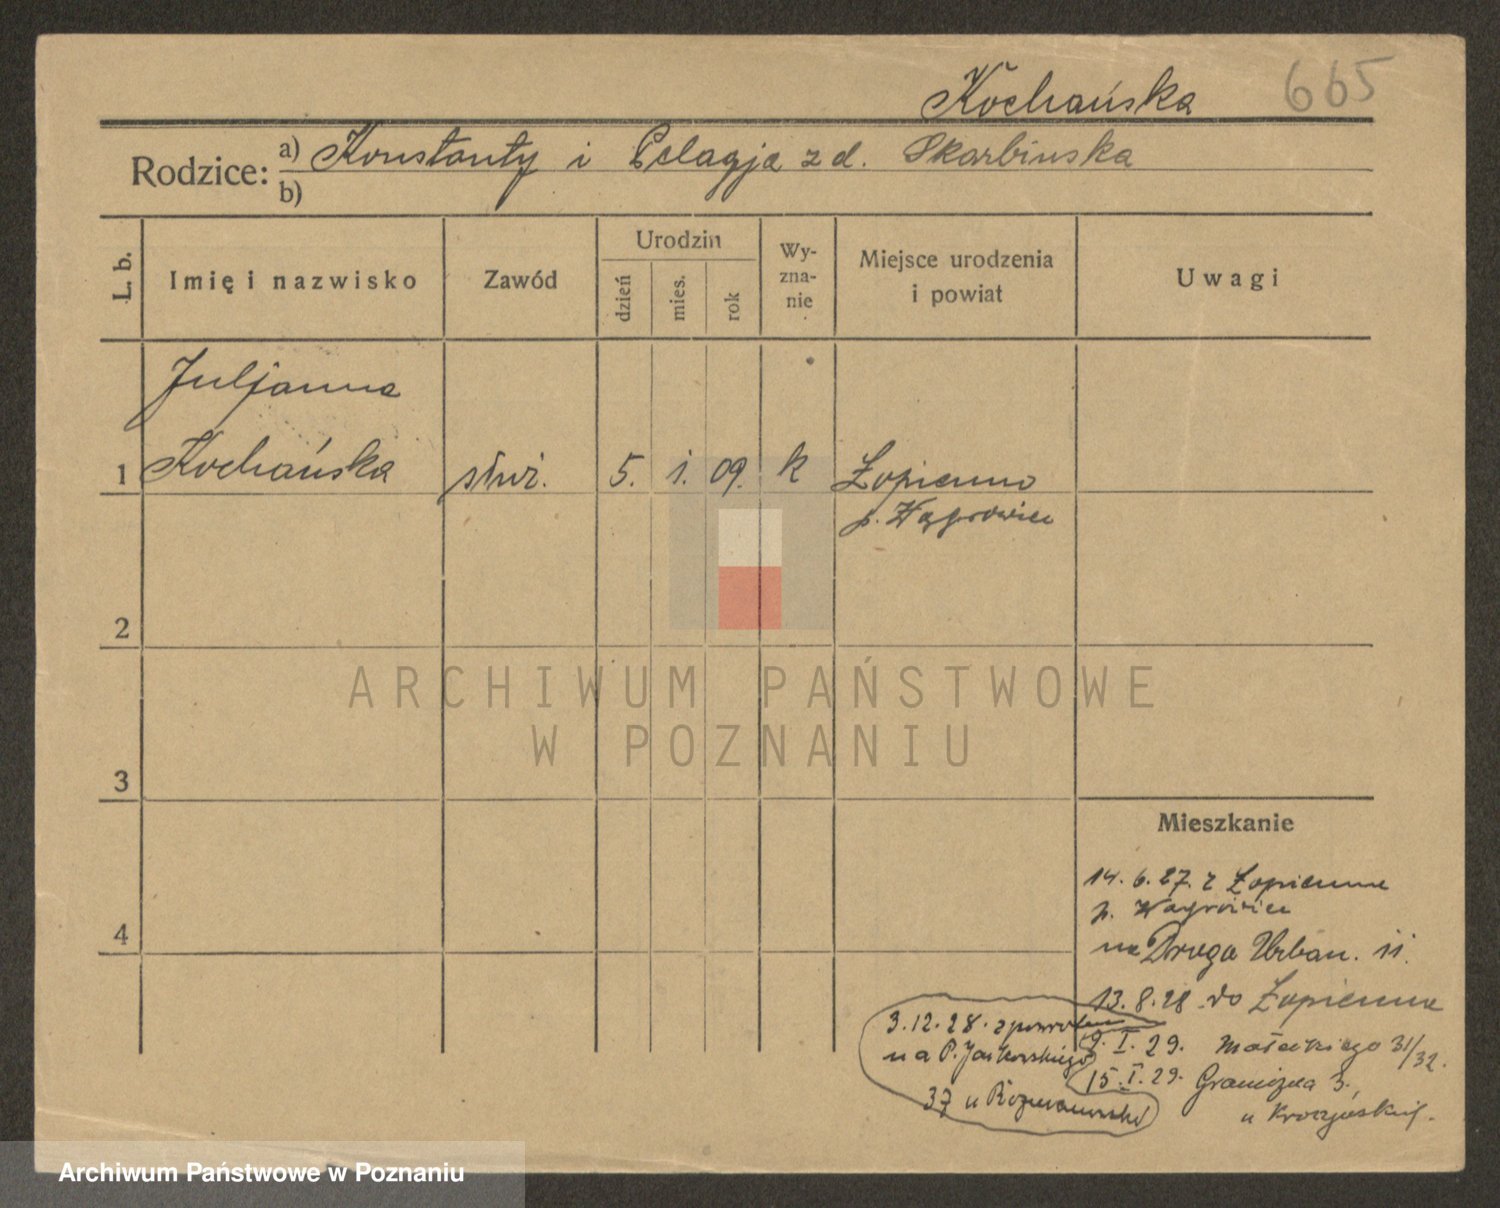 Kochańska 665
Rodzice: a) Konstanty i Pelagja z d. Skarbinska
b)
L. b.
Imię i nazwisko
Zawód
Urodzin
dzień
mies.
rok
Wy-
zna-
nie
Miejsce urodzenia
i powiat
Uwagi
Juljanna
1 Kochańska służ. 5. i. 09. k Łopienno
p. Wągrowiec
2
ARCHIWUM PAŃSTWOWE
W POZNANIU
3
Mieszkanie
14. 6. 27. z Łopienna
p. Wągrowiec
4
na Droga Urban. 11.
13. 8. 28 do Łopienna
3.12.28. zpowrotem
na P. Jackowskiego
37 u
9. I. 29. Małeckiego 31/32.
15. I. 29. Graniczna 3.
u
Archiwum Państwowe w Poznaniu